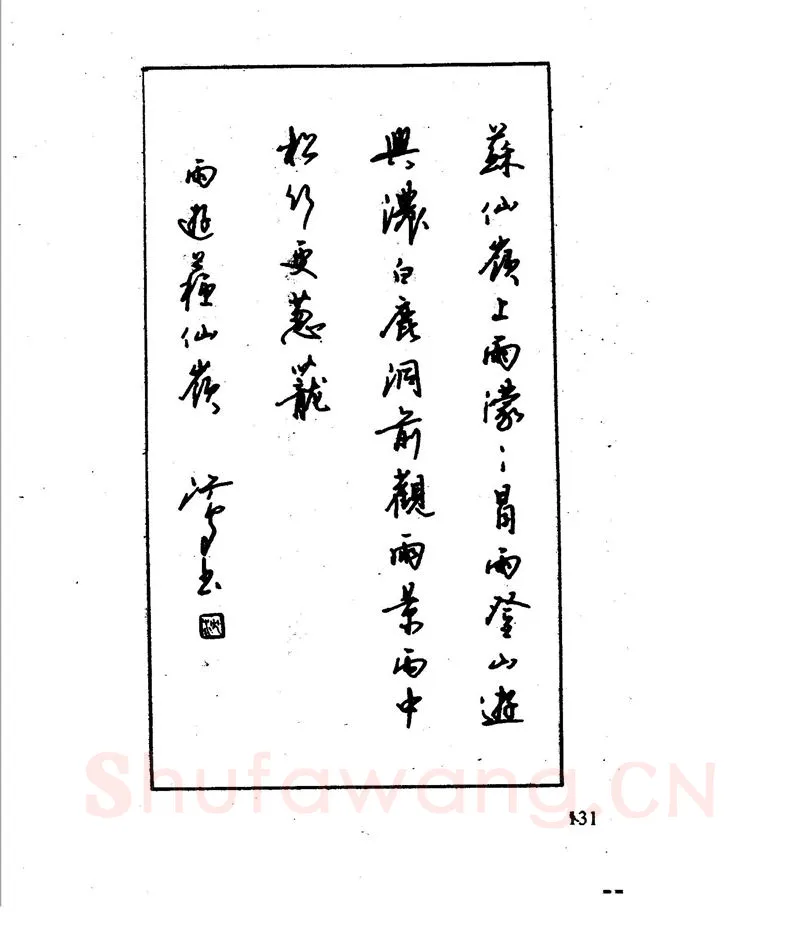 蘇仙嶺上雨濛〻冒雨登山遊
興濃白鹿洞前觀雨景雨中
松竹更蔥蘢
雨遊蘇仙嶺
書
131
Shufawang.CN